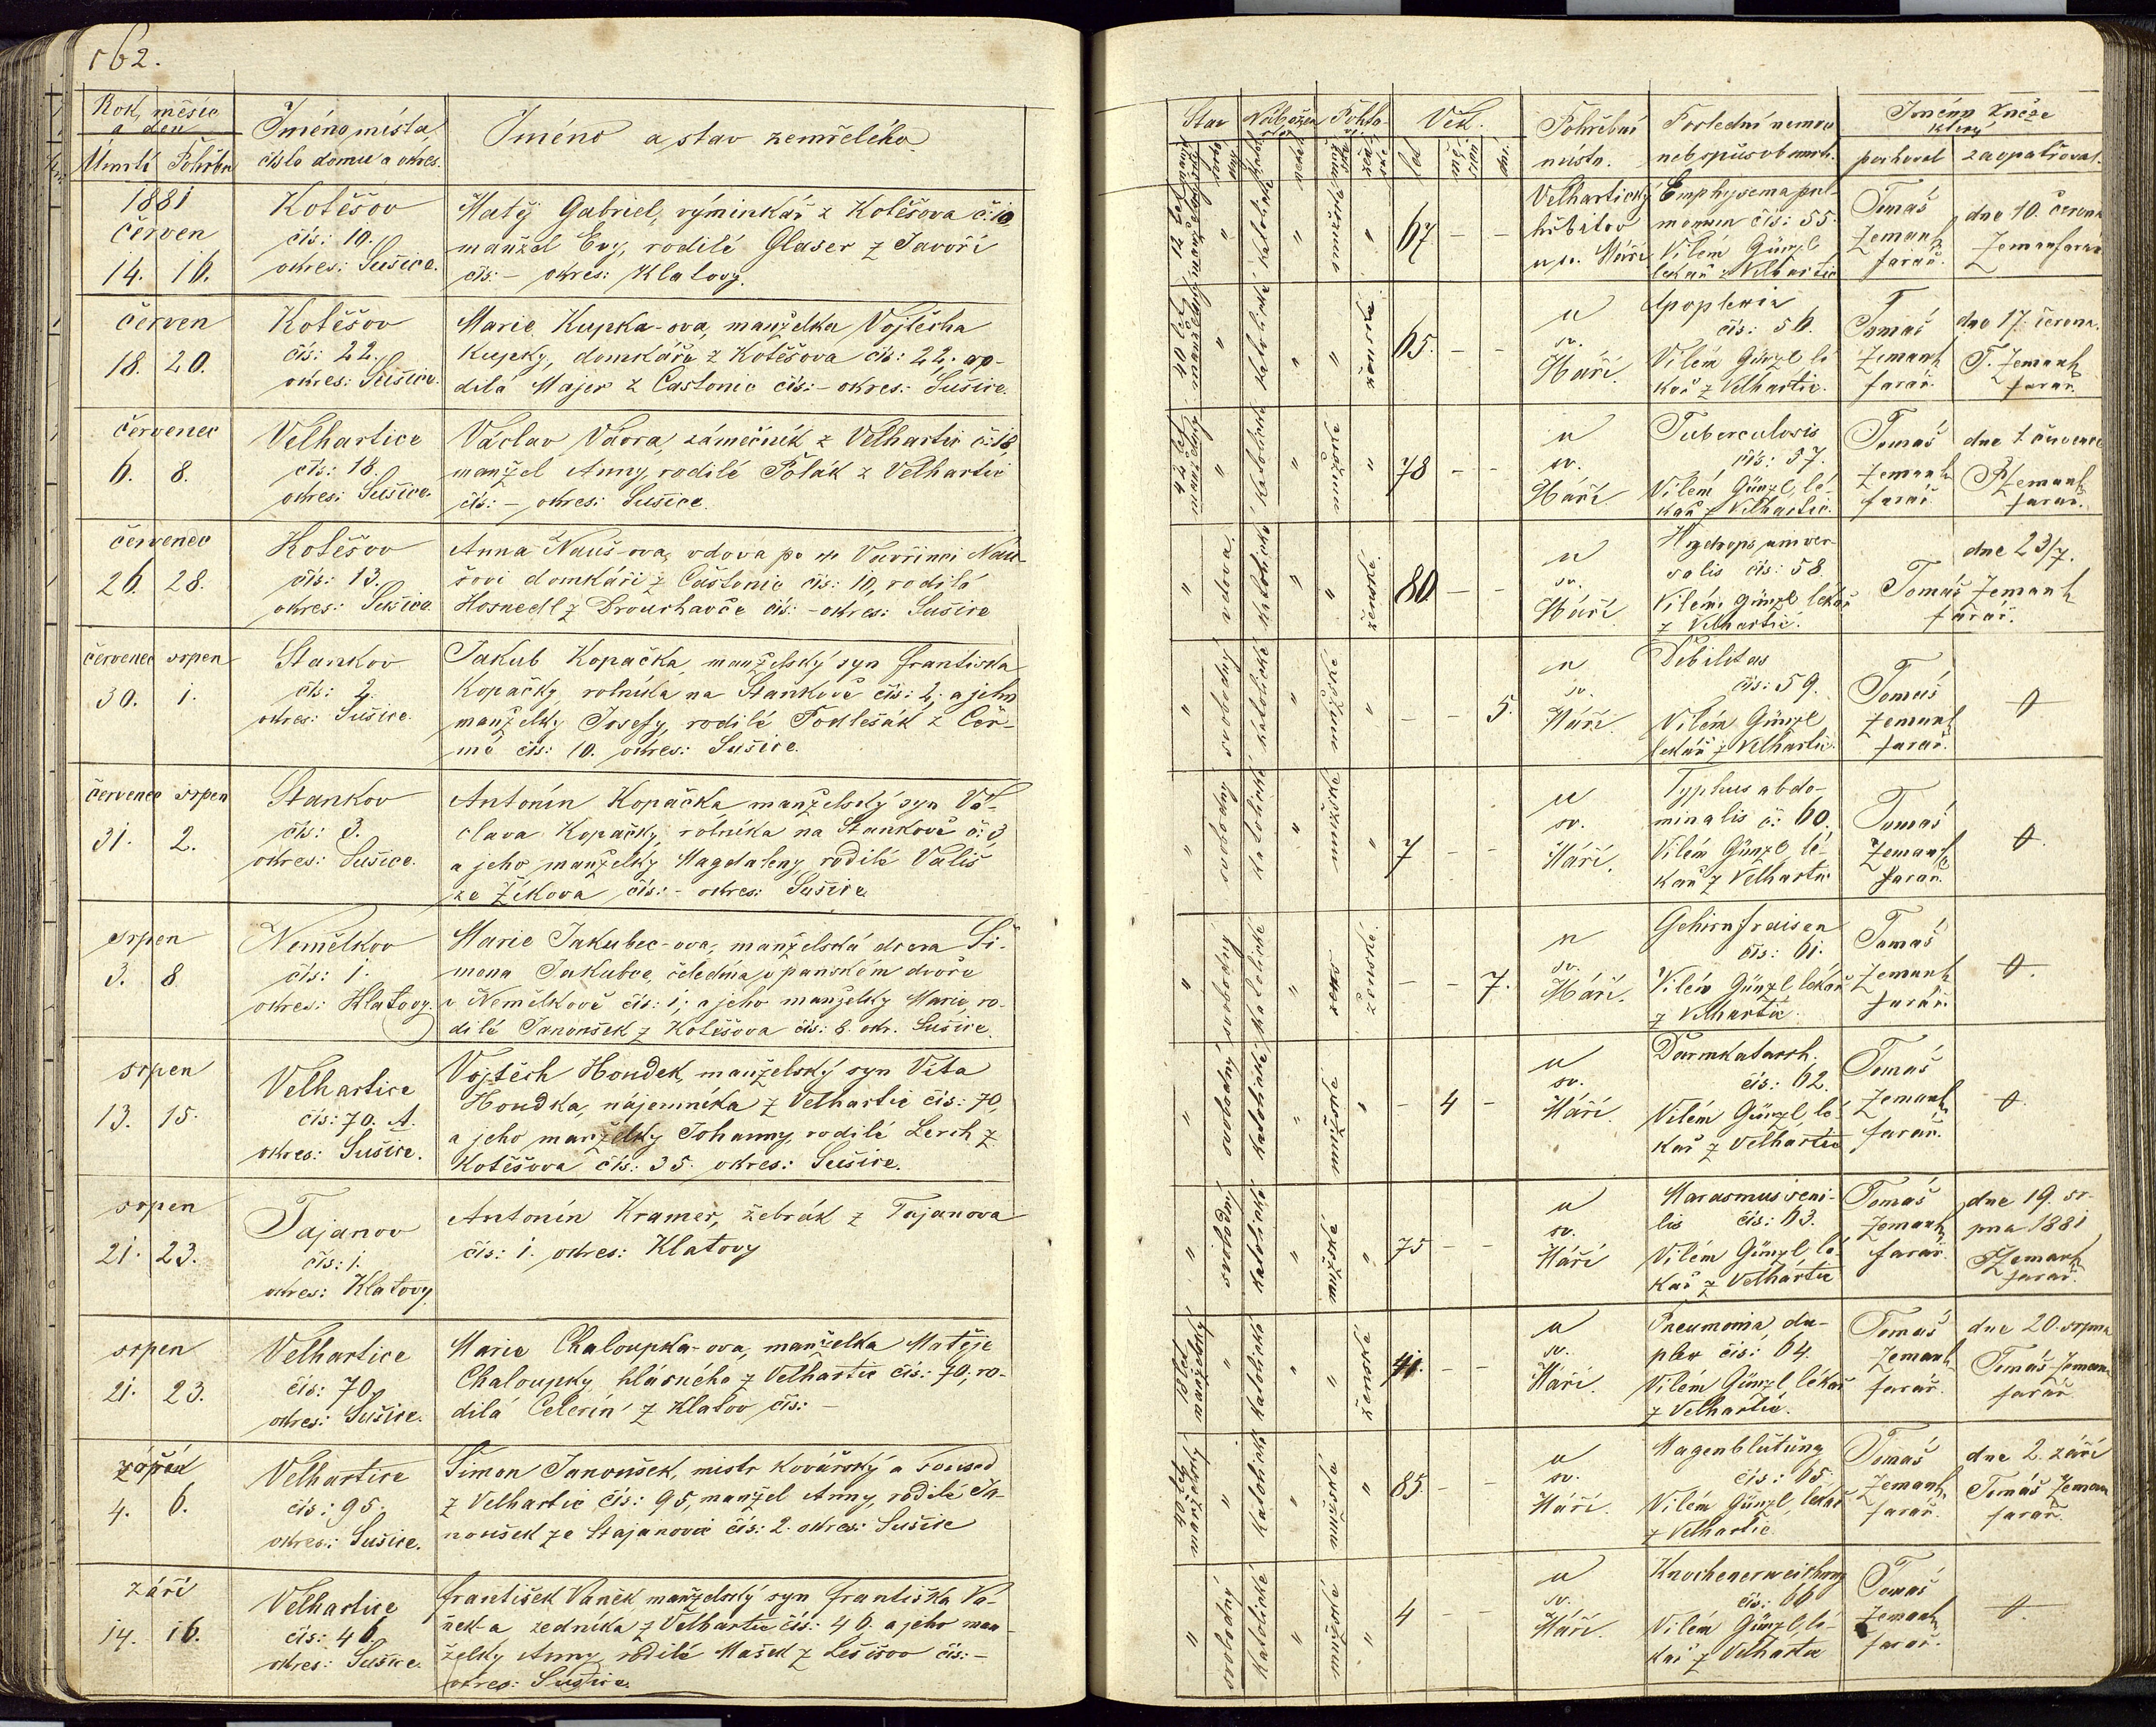 162.
Rok, měsíc
a den
Úmrtí Pohřbu
Jméno místa,
číslo domu a okres.
Jméno a stav zemřelého
1881
červen
14. 16.
Kotěšov
čís: 10.
okres: Sušice.
Matěj Gabriel, výminkář z Kotěšova č: 10
manžel Evy, rodilé Glaser z Javoří
čís: – okres: Klatovy.
červen
18. 20.
Kotěšov
čís: 22.
okres: Sušice.
Marie Kupka-ova, manželka Vojtěcha
Kupky, domkáře z Kotěšova čís: 22,
dilá Majer z Častonic čís: – okres: Sušice.
červenec
6. 8.
Velhartice
čís: 18.
okres: Sušice.
Václav Vávra, zámečník z Velhartic č: 18,
manžel Anny, rodilé Polák z Velhartic
čís: – okres: Sušice.
červenec
26. 28.
Kotěšov
čís: 13.
okres: Sušice
Anna Nauš-ova, vdova po Vavřinci Nau-
šovi domkáři z Častonic čís: 10, rodilá
Hosnedl z Drouhavče čís: – okres: Sušice
červenec srpen
30. 1.
Stankov
čís: 2.
okres: Sušice.
Jakub Kopačka, manželský syn Františka
Kopačky, rolníka na Stankově čís: 2, a jeho
manželky Josefy, rodilé Podlešák z Čer-
mé čís: 10. okres: Sušice.
červenec srpen
31. 2.
Stankov
čís: 3.
okres: Sušice.
Antonín Kopačka, manželský syn Vá-
clava Kopačky, rolníka na Stankově č: 3
a jeho manželky Magdaleny, rodilé Vališ
ze Žíkova čís: – okres: Sušice
srpen
3. 8
Nemělkov
čís: 1.
okres: Klatovy
Marie Jakubec-ova, manželská dcera Ši-
mona Jakubce, čeledína v panském dvoře
v Nemělkově čís: 1, a jeho manželky Marie, ro-
dilé Janoušek z Kotěšova čís: 8. okr. Sušice.
srpen
13. 15.
Velhartice
čís: 70. A.
okres: Sušice.
Vojtěch Houdek, manželský syn Víta
Houdka, nájemníka z Velhartic čís: 70,
a jeho manželky Johanny, rodilé Lerch z
Kotěšova čís: 35. okres: Sušice.
srpen
21. 23.
Tajanov
čís: 1.
okres: Klatovy
Antonín Kramer, žebrák z Tajanova
čís: 1. okres: Klatovy
srpen
21. 23.
Velhartice
čís: 70
okres: Sušice.
Marie Chaloupka-ova, manželka Matěje
Chaloupky, hlásného z Velhartic čís: 70, ro-
dilá Celerín z Klatov čís: –
4. 6.
Velhartice
čís: 95.
okres: Sušice.
Šimon Janoušek, mistr kovářský a soused
z Velhartic čís: 95, manžel Anny, rodilé Ja-
noušek ze Stajanovic čís: 2. okres: Sušice
září
14. 16.
Velhartice
čís: 46.
okres: Sušice.
František Vaněk manželský syn Františka Va-
něk-a zedníka z Velhartic čís: 46. a jeho man-
želky Anny, rodilé Mašek z Lešišov čís: –
okres: Sušice.
Stav
Nábožen
Pohla-
Věk.
let
dní.
Pohřební
místo.
Poslední nemoc
neb způsob smrti.
Jméno kněze
který
pochoval zaopatřoval.
12 let manželský " katolické " mužské " 67 – –
Velhartický
hřbitov
u sv. Máří
Emphysema pul-
monum čís: 55.
Vilém Günzl
lékař z Velhartic
Tomáš
Zemank
farář.
dne 10. června
Zeman farář
40 let manželský " katolické " " ženské. 65. – –
u
sv.
Máří.
Apoplexia
čís: 56.
Vilém Günzl lé-
kař z Velhartic.
Tomáš
Zemank
farář.
dne 17. června.
T. Zemank
farář.
42 let manželský " katolické " mužské " 78 – –
u
sv.
Máří.
Tuberculosis
čís: 57.
Vilém Günzl, lé-
kař z Velhartic.
Tomáš
Zemank
farář.
dne 1. července
TZemank
farář.
" vdova. katolické " " ženské. 80. – –
u
sv.
Máří.
Hydrops univer-
salis čís: 58
Vilém Günzl lékař
z Velhartic.
dne 23/7.
Tomáš Zemank
farář.
" svobodný katolické " mužské. " – – 5.
u
sv.
Máří.
Debilitas
čís: 59.
Vilém Günzl
lékař z Velhartic.
Tomáš
Zemank
farář.
0
" svobodný katolické " mužské " 7 – –
u
sv.
Máří.
Typhus abdo-
minalis č: 60.
Vilém Günzl lé-
kař z Velhartic
Tomáš
Zemank
farář.
0.
" svobodný katolické " ženské. – – 7.
u
sv.
Máří.
Gehirnfraisen
čís: 61.
Vilém Günzl lékař
z Velhartic.
Tomáš
Zemank
farář.
0.
" svobodný katolické " mužské " – 4 –
u
sv.
Máří.
Darmkatarrh.
čís: 62.
Vilém Günzl, lé-
kař z Velhartic
Tomáš
Zemank
farář.
0.
" svobodný katolické " mužské " 75 – –
u
sv.
Máří
Marasmus seni-
lis čís: 63.
Vilém Günzl, lé-
kař z Velhartic
Tomáš
Zemank
farář.
dne 19. sr-
pna 1881
TZemank
farář.
18 let manželský " katolické " " ženské 41. – –
u
sv.
Máří.
Pneumonia du-
plex čís: 64.
Vilém Günzl, lékař
z Velhartic.
Tomáš
Zemank
farář.
dne 20. srpna
Tomáš Zeman
farář
40 let manželský " katolické " mužské " 85. – –
u
sv.
Máří.
Magenblutung
čís: 65.
Vilém Günzl, lékař
z Velhartic
Tomáš
Zemank
farář.
dne 2. září
Tomáš Zeman
farář.
" svobodný katolické " mužské " 4 – –
u
sv.
Máří.
Knochenerweichung
čís: 66
Vilém Günzl, lé-
kař z Velhartic
Tomáš
Zemank
farář.
0.